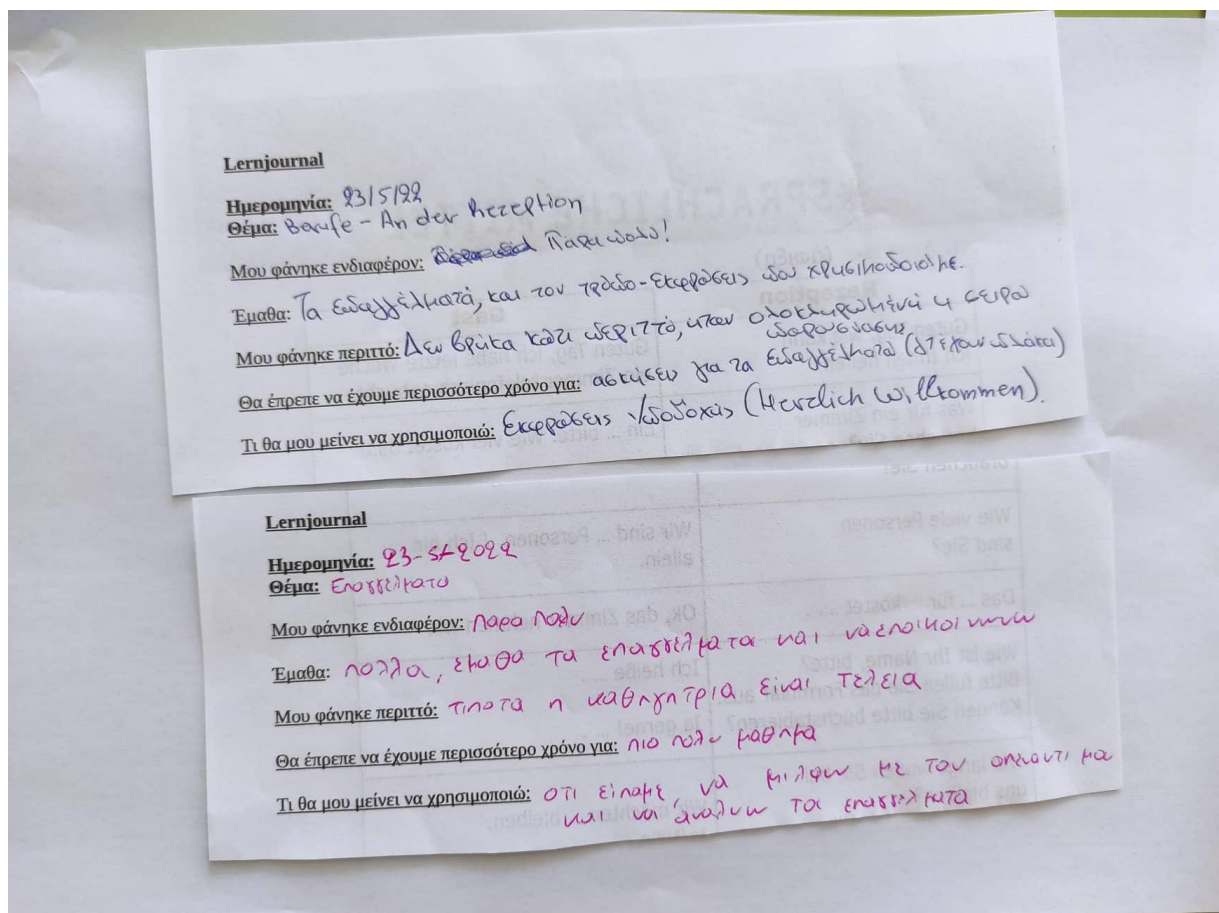 Lernjournal
Ημερομηνία: 23/5/22
Θέμα: Berufe - An der Rezeption
Μου φάνηκε ενδιαφέρον: Πάρα πολύ!
Έμαθα: Τα επαγγέλματά, και τον τρόπο-Εκφράσεις που χρησιμοποιούμε.
Μου φάνηκε περιττό: Δεν βρήκα κάτι περιττό, ήταν ολοκληρωμένη η σειρά
παρουσίασης
Θα έπρεπε να έχουμε περισσότερο χρόνο για: ασκήσεις για τα Επαγγέλματα
Τι θα μου μείνει να χρησιμοποιώ: Εκφράσεις Υποδοχής (Herzlich Willkommen).
Lernjournal
Ημερομηνία: 23-5-2022
Θέμα: Επαγγελματα
Μου φάνηκε ενδιαφέρον: παρα πολυ
Έμαθα: πολλα, εμαθα τα επαγγελματα και να εποικοινωνω
Μου φάνηκε περιττό: τιποτα η καθηγητρια είναι τελεια
Θα έπρεπε να έχουμε περισσότερο χρόνο για: πιο πολυ μαθημα
Τι θα μου μείνει να χρησιμοποιώ: οτι είπαμε, να μιλαω με τον απεναντι μα
και να αναλυω τα επαγγελματα